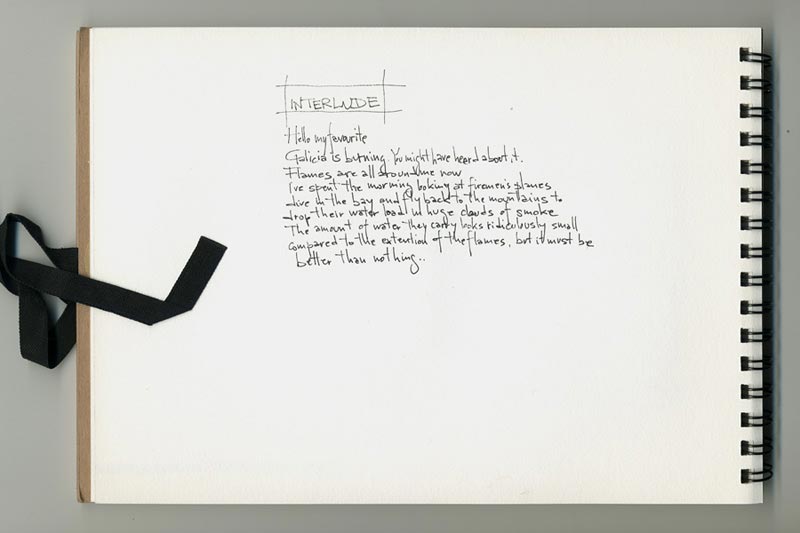 INTERLUDE
Hello my favourite
Galicia is burning. You might have heard about it.
Flames are all around me now
I've spent the morning looking at firemen's planes
dive in the bay and fly back to the mountains to
drop their water load in huge clouds of smoke
The amount of water they carry looks ridiculously small
compared to the extention of the flames, but it must be
better than nothing..